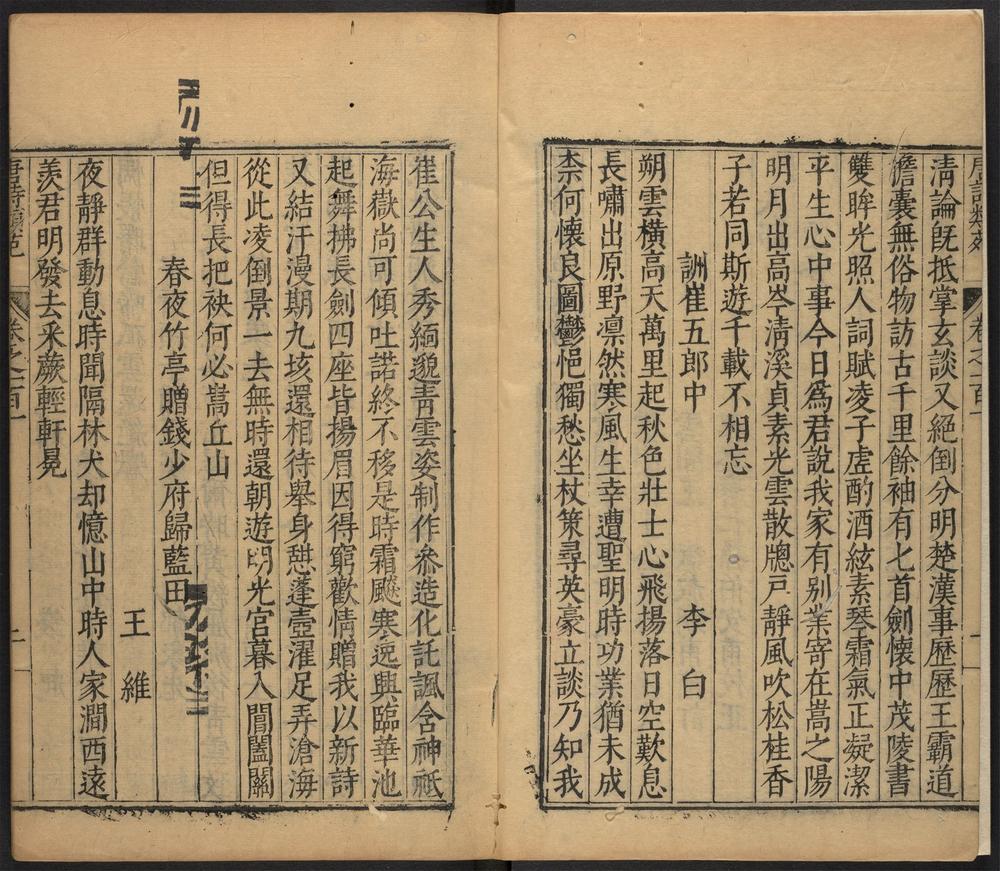 唐詩類苑 卷之一百一
清論旣抵掌玄談又絕倒分明楚漢事歷歷王霸道
擔囊無俗物訪古千里餘袖有匕首劍懷中茂陵書
雙眸光照人詞賦凌子虛酌酒絃素琴霜氣正凝潔
平生心中事今日爲君說我家有别業寄在嵩之陽
明月出高岑淸溪貞素光雲散牎戸靜風吹松桂香
子若同斯遊千載不相忘
訓崔五郎中 李白
朔雲橫高天萬里起秋色壯士心飛揚落日空歎息
長嘯出原野凛然寒風生幸遭聖明時功業猶未成
柰何懷良圖鬱悒獨愁坐杖策尋英豪立談乃知我
崔公生人秀緬邈靑雲姿制作叅造化託諷含神祇
海嶽尚可傾吐諾終不移是時霜飈寒逸興臨華池
起舞拂長劍四座皆揚眉因得窮歡情贈我以新詩
又結汗漫期九垓還相待舉身憇蓬壼濯足弄滄海
從此凌倒景一去無時還朝遊明光宮暮入閶闔關
但得長把袂何必嵩丘山
春夜竹亭贈錢少府歸藍田
王維
夜靜群動息時聞隔林犬却憶山中時人家澗西遠
羨君明發去采蕨輕軒冕
唐詩類苑 卷之一百一 二